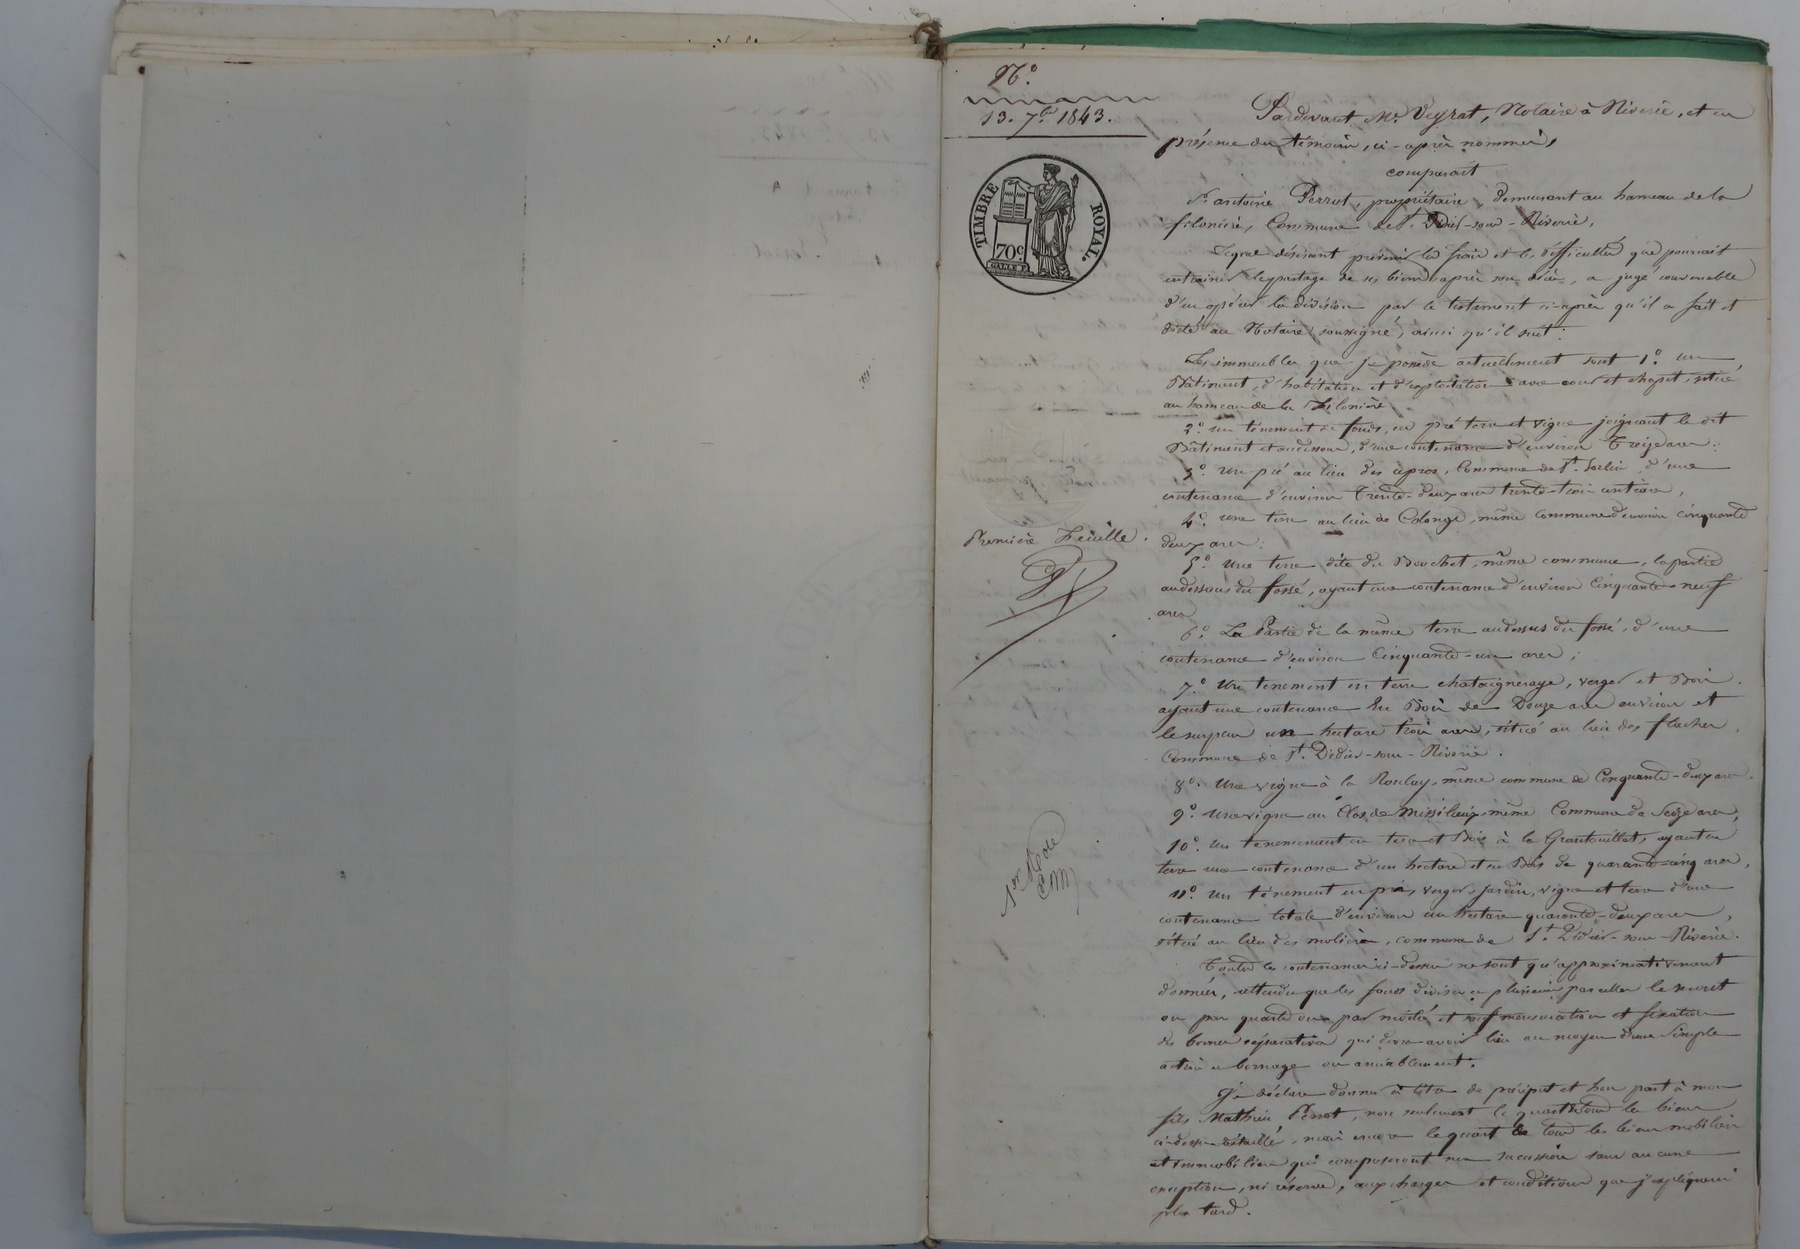 N°.
13. 7bre 1843.
TIMBRE ROYAL.
70c
Pardevant Me. Veyrat, Notaire à Riverie, et en
présence des témoins, ci-après nommés,
comparait
Sr. antoine Perrot, propriétaire, demeurant au hameau de la
filonière, Commune de St. Didier-sous-Riverie,
Lequel désirant prévenir les frais et les difficultés que pourrait
entrainer le partage de ses biens après son décès, a jugé convenable
d'en opérer la division par le testament ci-après qu'il a fait et
dicté au Notaire soussigné, ainsi qu'il suit:
Les immeubles que je possède actuellement sont 1°. un
Bâtiment, d'habitation et d'exploitation avec cour et chapit, situé
au hameau de la filonière
2°. un tenement de fonds, en pré terre et vigne joignant le dit
Bâtiment et audessous, d'une contenance d'environ Treize ares:
3°. Un pré au lieu des, Commune de St. Sorlin, d'une
contenance d'environ Trente-deux ares trente-trois centiares,
4°. une terre au lieu de Colonge, même Commune d'environ cinquante
deux ares:
5°. une terre dite du Bouchet, même commune, la partie
audessous du fossé, ayant une contenance d'environ Cinquante-neuf
ares
6°. La Partie de la même terre audessus du fossé, d'une
contenance d'environ Cinquante-un ares;
7°. Un tenement en terre chataigneraye, verger et Bois.
ayant une contenance En Bois de Douze ares environ et
le surplus un hectare trois ares, situé au lieu des flaches,
Commune de St. Didier-sous-Riverie.
8°. Une vigne à la, même commune de Cinquante-deux ares.
9°. une vigne au Clos de, même Commune de Seize ares,
10°. Un tenemement en terre et Bois à la, ayant en
terre une contenance d'un hectare et en Bois de quarante-cinq ares,
11°. un tènement en pré, verger, jardin, vigne et terre d'une
contenance totale d'environ un hectare quarante-deux ares,
situé au lieu des molières, commune de St. Didier-sous-Riverie.
Toutes les contenances ci-dessus ne sont qu'approximativement
données, attendu que les fonds divisés en plusieurs parcelles le seront
ou par quarts ou par moitié et sauf mensuration et fixation
des bornes séparatives qui devra avoir lieu au moyen d'une simple
action en bornage ou amiablement.
Je déclare donner à titre de préciput et hors part à mon
fils Mathieu Perrot, non seulement le quart de tous les biens
ci-dessus détaillés, mais encore le quart de tous les biens mobiliers
et immobiliers qui composeront ma succession sans aucune
exception, ni réserve, aux charges et conditions que j'expliquerai
plus tard.
Première Feuille.
1er Rôle